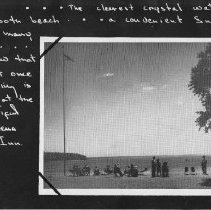 . . . The clearest crystal wat
ooth beach . . . a convenient Sn
many
. . . .
w that
once
ing is
at the
iful
ena
Inn.